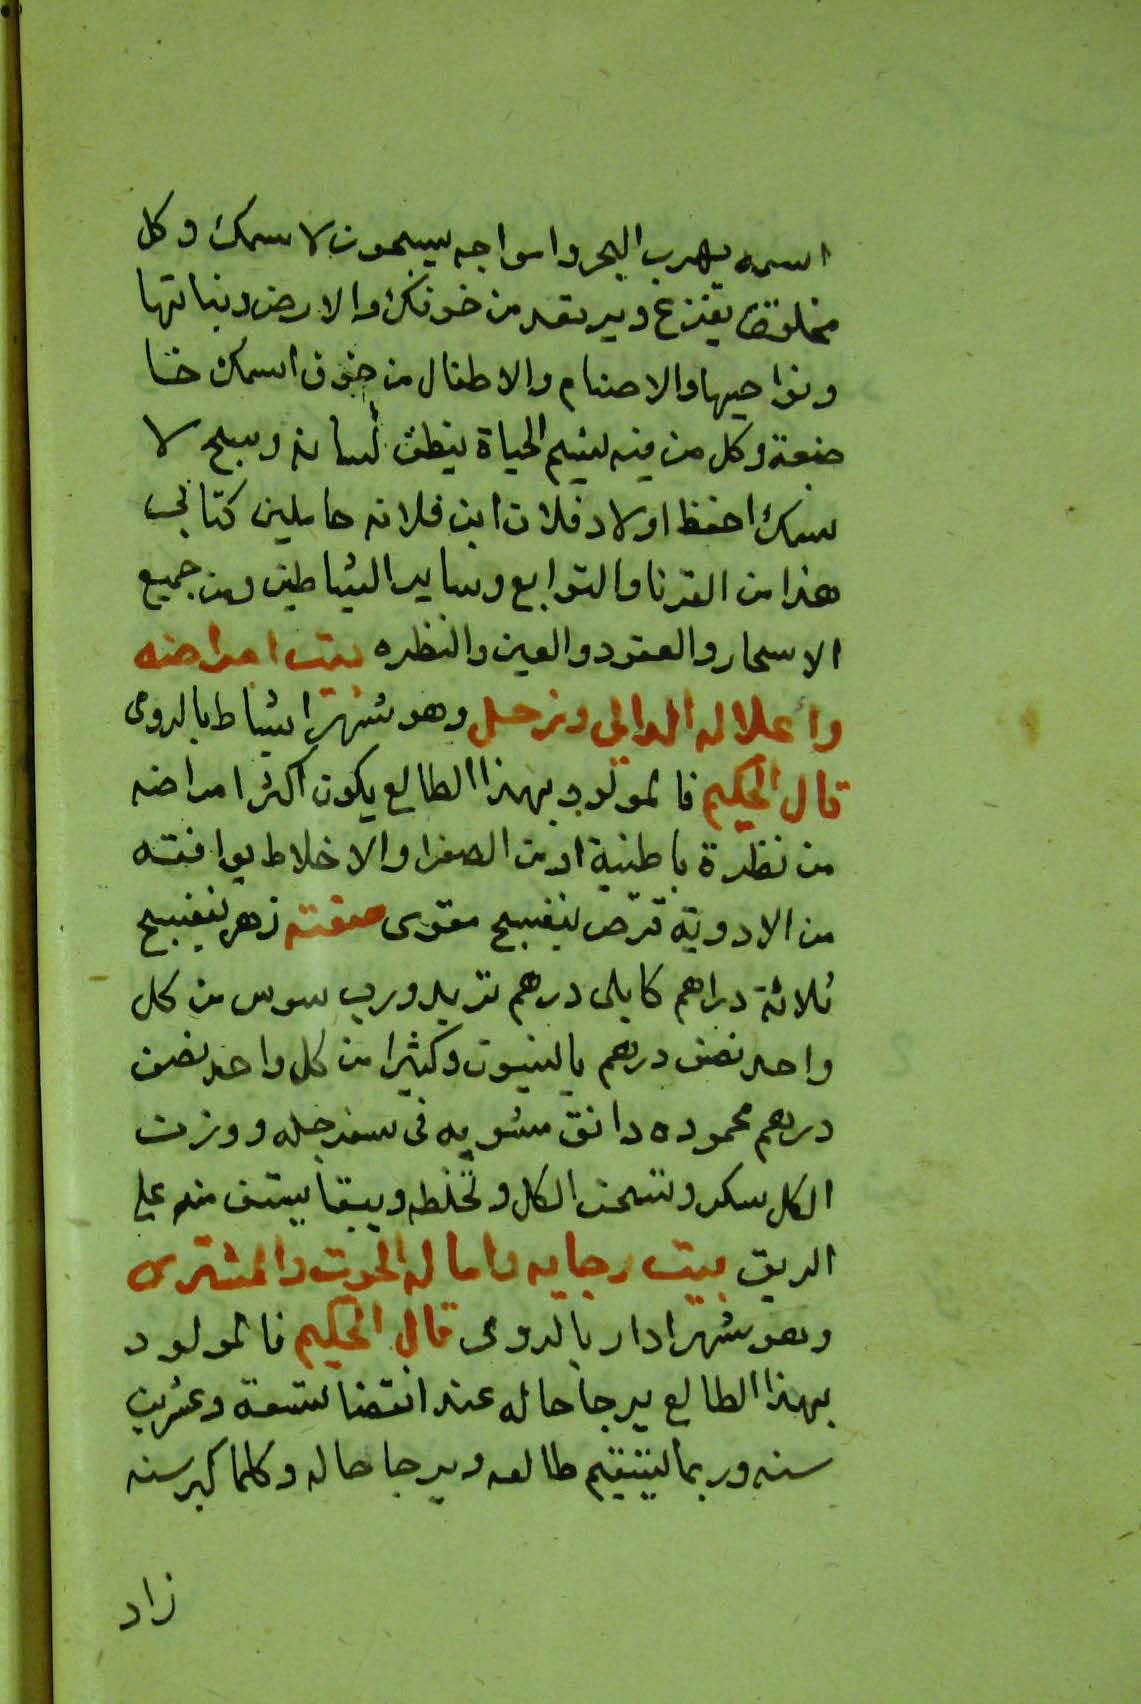 اسمه يهرب البحر وامواجه يسبحون لاسمك وكل
مخلوق يفزع ويرتعد من خوفك والارض ونباتها
ونواحيها والاصنام والاطفال من خوف اسمك خا
ضعة وكل من فيه نسيم الحياة ينطق لسانه وسبح لا
سمك احفظ اولاد فلان ابن فلانه حاملين كتابي
هذا من القرنا والتوابع وساير الشياطين ومن جميع
الاسحار والعقود والعين والنظره بيت امراضه
وأعلاله الدالي وزحل وهو شهر اشباط بالرومى
قال الحكيم فالمولود بهذا الطالع يكون اكثر امراضه
من نظرة باطنية او من الصفرا والاخلاط يوافقه
من الادوية قرص بنفسج مقوى صفته زهر بنفسج
ثلاثة دراهم كابلى درهم تربد ورب سوس من كل
واحد نصف درهم يانيسون وكثيرا من كل واحد نصف
درهم محموده دانق مشويه فى سفرجله ووزن
الكل سكر وتسحق الكل وتخلطه ويبقا يستف منه على
الريق بيت رجايه واماله الحوت والمشترى
وهو شهر ادار بالرومى قال الحكيم فالمولود
بهذا الطالع يرجا حاله عند انقضا تسعة وعشرين
سنه وربما يستقيم طالعه ويرجا حاله وكلما كبر سنه
زاد